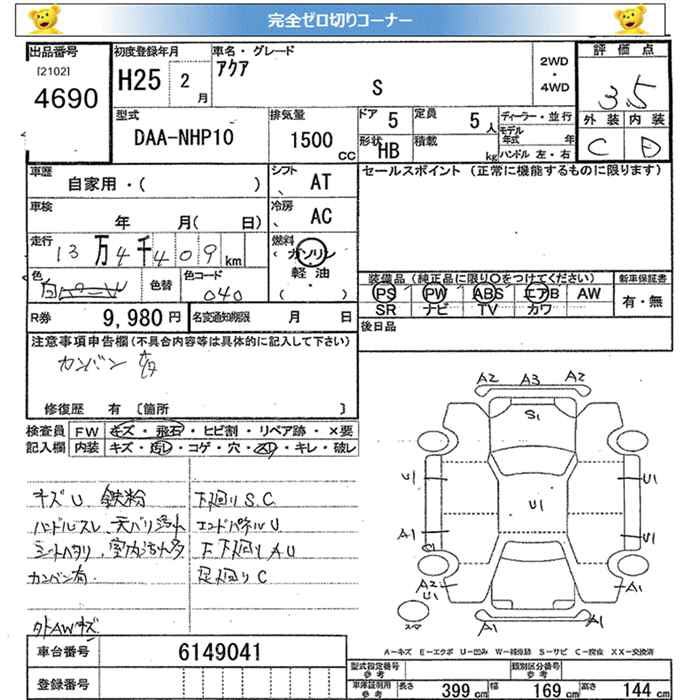 完全ゼロ切りコーナー
出品番号
[2102]
4690
初度登録年月
H25 2 月
車名・グレード
アクア
S
2WD
・
4WD
評価点
3.5
外装 内装
C D
型式
DAA-NHP10
排気量
1500 CC
ドア 5
定員 5 人
形状 HB
積載 kg
ディーラー・並行
モデル年式 年
ハンドル 左・右
車歴
自家用・( )
シフト AT
セールスポイント (正常に機能するものに限ります)
車検
年 月( 日)
冷房 AC
走行
13万4千409km
燃料
(ガソリン
・
軽・油
( )
色
色替
色コード
040
装備品(純正品に限り〇をつけてください)
PS PW ABS エアB AW
SR ナビ TV カワ
新車保証書
有・無
R券 9,980円
名変通知期限 月 日
後日品
注意事項申告欄(不具合内容等は具体的に記入して下さい)
カンバン 多
修復歴 有 [箇所 ]
検査員
記入欄
FW キズ・飛石・ヒビ割・リペア跡・×要
内装 キズ・汚レ・コゲ・穴・スリ・キレ・破レ
キズU 鉄粉
下廻りS.C
ハンドルスレ、天バリ汚れ
エンドパネルU
シートヘタリ、室内汚れ多
下下廻りAU
カンバン有
足廻りC
外AWキズ
A2 A3 A2
S1
U1 U1 U1
A1 U1
A2
U1
A1
スマ
A1 A1
A-キズ E-エクボ U-凹み W-補修跡 S-サビ C-腐食 XX-交換済
車台番号 6149041
登録番号
型式指定番号
参考
類別区分番号
参考
車庫証明用
参考
長さ 399 cm 幅 169 cm 高さ 144 cm